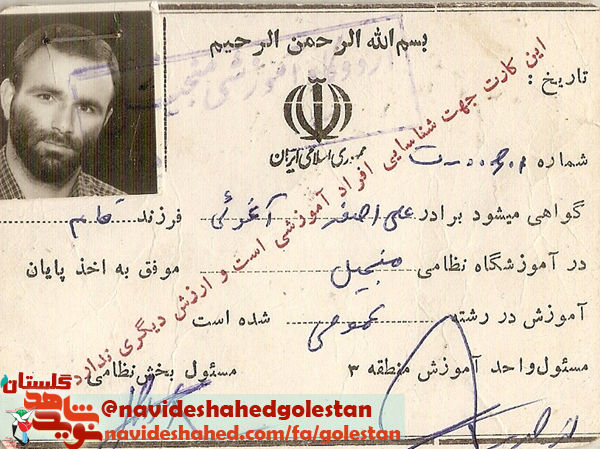 بسم الله الرحمن الرحیم
تاریخ :
جمهوری اسلامی ایران
شماره
گواهی میشود برادر علی اصغر آغوئی فرزند قاسم
در آموزشگاه نظامی منجیل موفق به اخذ پایان
آموزش در رشته عمومی شده است
مسئول واحد آموزش منطقه ۳
مسئول بخش نظامی
این کارت جهت شناسایی افراد آموزشی است و ارزش دیگری ندارد
اردوگاه آموزشی منجیل
نوید شاهد گلستان
@navideshahedgolestan
navideshahed.com/fa/golestan